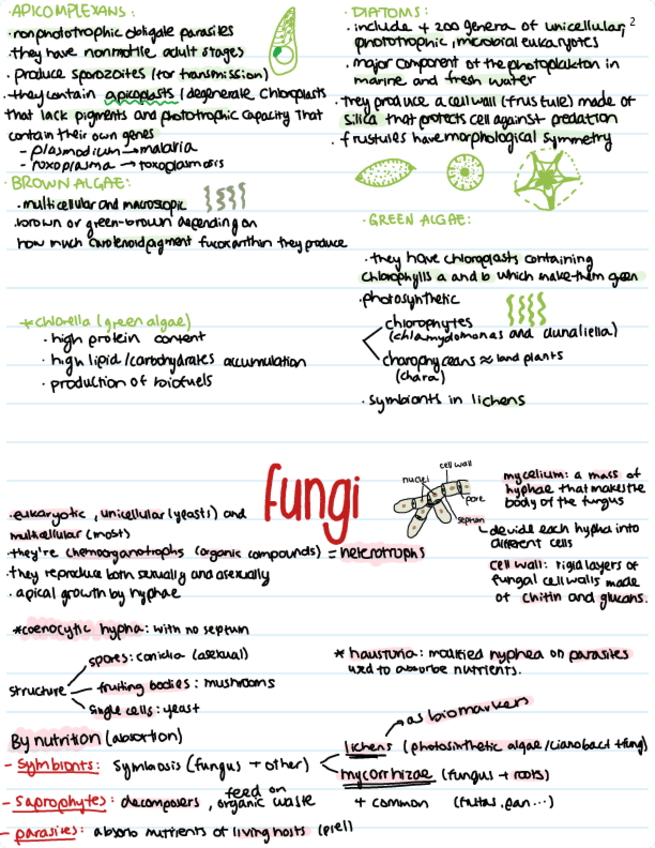 · APICOMPLEXANS :
· nonphototrophic obligate parasites
· they have nonmotile adult stages
· produce sporozoites (for transmission)
· they contain apicoplasts (degenerate chloroplasts
that lack pigments and phototrophic capacity that
contain their own genes
- plasmodium → malaria
- toxoplasma → toxoplasmosis
· BROWN ALGAE:
· multicellular and macroscopic
· brown or green-brown depending on
how much carotenoid pigment fucoxanthin they produce
* chlorella (green algae)
· high protein content
· high lipid/carbohydrates accumulation
· production of biofuels
· DIATOMS:
· include + 200 genera of unicellular, 2
phototrophic, microbial eukaryotes
· major component of the photoplakton in
marine and fresh water
· they produce a cell wall (frustule) made of
silica that protects cell against predation
· frustules have morphological symmetry
· GREEN ALGAE:
· they have chloroplasts containing
chlorophylls a and b which make them green
· photosynthetic
chlorophytes
(chlamydomonas and dunaliella)
charophyceans ≈ land plants
(chara)
· symbionts in lichens
fungi
· eukaryotic, unicellular (yeasts) and
multicellular (most)
· they're chemoorganotrophs (organic compounds) = heterotrophs
· they reproduce both sexually and asexually
· apical growth by hyphae
nuclei
cell wall
pore
septum
devide each hypha into
different cells
mycelium: a mass of
hyphae that makes the
body of the fungus
cell wall: rigid layers of
fungal cell walls made
of chitin and glucans.
* coenocytic hypha: with no septum
structure
spores: conidia (asexual)
fruiting bodies: mushrooms
single cells: yeast
* hausturia: modified hyphea on parasites
used to absorbe nutrients.
By nutrition (absorption)
- symbionts: symbiosis (fungus + other)
as biomarkers
lichens (photosinthetic algae/cianobact + fung)
mycorrhizae (fungus + roots)
- saprophytes: decomposers, feed on
organic waste
+ common (frutas, pan...)
- parasites: absorb nutrients of living hosts